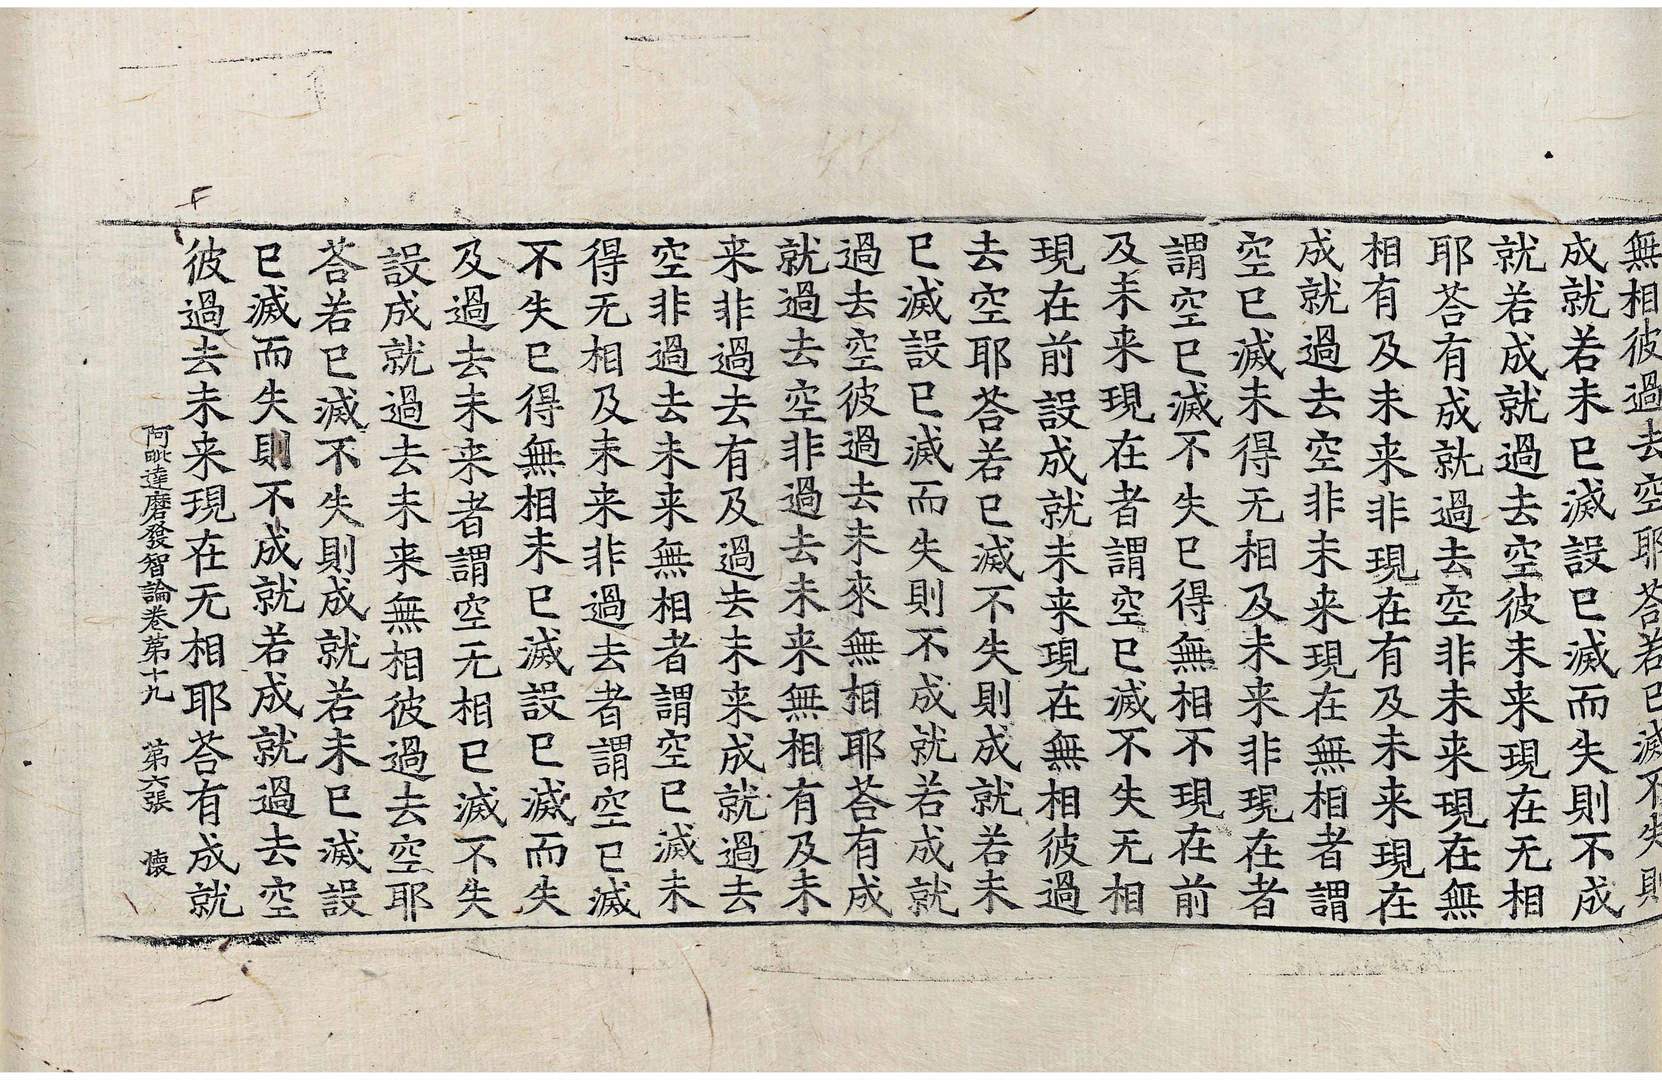 無相彼過去空耶荅若已滅不失則
成就若未已滅設已滅而失則不成
就若成就過去空彼未来現在无相
耶荅有成就過去空非未来現在無
相有及未来非現在有及未来現在
成就過去空非未来現在無相者謂
空已滅未得无相及未来非現在者
謂空已滅不失已得無相不現在前
及未来現在者謂空已滅不失无相
現在前設成就未来現在無相彼過
去空耶荅若已滅不失則成就若未
已滅設已滅而失則不成就若成就
過去空彼過去未來無相耶荅有成
就過去空非過去未来無相有及未
来非過去有及過去未来成就過去
空非過去未来無相者謂空已滅未
得无相及未来非過去者謂空已滅
不失已得無相未已滅設已滅而失
及過去未来者謂空无相已滅不失
設成就過去未来無相彼過去空耶
荅若已滅不失則成就若未已滅設
已滅而失則不成就若成就過去空
彼過去未来現在无相耶荅有成就
阿毗達磨發智論卷第十九 第六張 懷